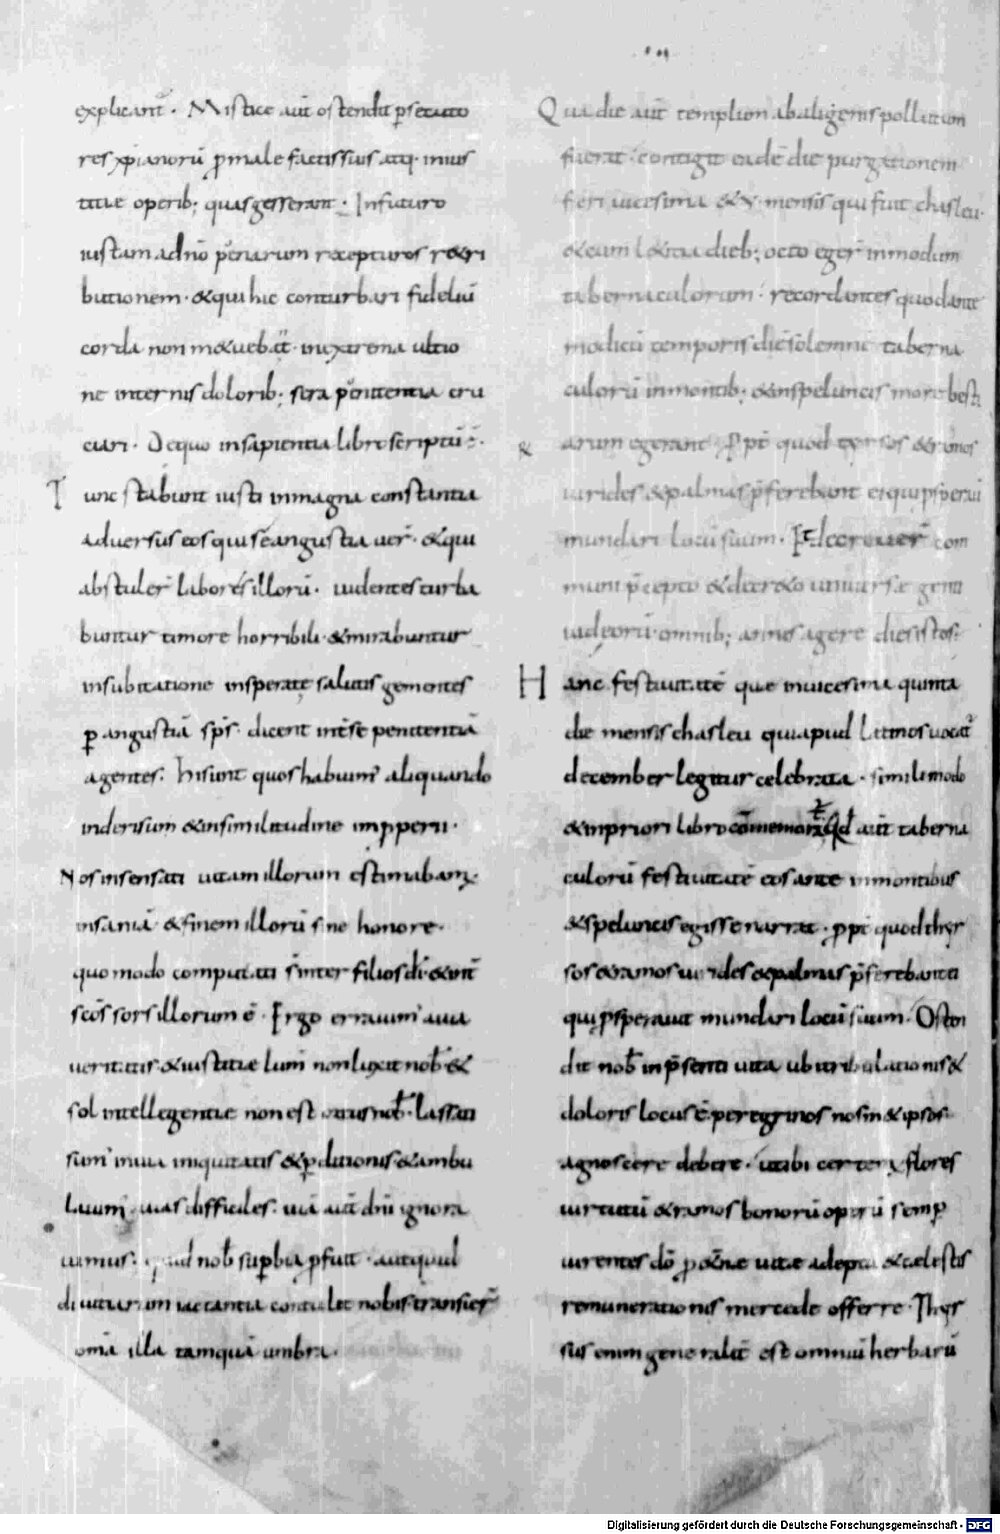 explicant̄ · Mistice aūt ostendit p̱secuto
res xp̄ianorū ꝓ male factis suis atq· inius
titiae operib; quas gesserant · In futuro
iustam a dn̄o poenarum recepturos retri
butionem · & qui hic conturbari fideliū
corda non metuebāt · in extrema ultio
ne internis dolorib; sera poenitentia cru
ciari · De quo in sapientia libro scriptū ē ·
Tunc stabunt iusti in magna constantia
aduersus eos qui se angustiauer̄ · & qui
abstuler̄ labores illorū · uidentes turba
buntur timore horribili · & mirabuntur
in subitatione insperate salutis gementes
p̱ angustiā sp̄s · dicent int̄ se penitentiā
agentes · hi sunt quos habuim' aliquando
in derisum & in similitudine improperii ·
Nos insensati uitam illorum estimabam;
insaniā · & finem illorū sine honore ·
quomodo computati s̄ inter filios dī · & int̄
sc̄os sors illorum ē · Ergo errauim' a uia
ueritatis · & iustitiae lum̄ non luxit nob̄ &
sol intellegentiae non est ortus nob̄ · Lassati
sum' in uia iniquitatis & p̱ditionis · & ambu
lauim' uias difficiles · uiā aūt dn̄i ignora
uimus · quid nob̄ sup̱bia ꝓfuit · aut quid
diuitiarum iactantia contulit nobis transier̄
om̄a illa tamquā umbra ·
Qua die aūt templum ab aligenis pollutum
fuerat · contigit eadē die purgationem
fieri uicesima & v · mensis qui fuit chasleu ·
& cum l&itia dieb; octo eger̄ in modum
tabernaculorum · recordantes quod ante
modicū temporis diē solemnē taberna
culorū in montib; & in speluncis more besti
& arum egerant · Propt̄ quod thyrsos & ramos
uirides & palmas p̄ferebant ei qui ꝓsperaui
mundari locū suum · Et decreuer̄ com
muni p̄cepto & decr&o uniuersae genti
iudeorū omnib; annis agere dies istos ·
Hanc festiuitatē que in uicesima quinta
die mensis chasleu qui apud Latinos uocat̄
december legitur celebrata · simili modo
& in priori libro cōmemorat̄ Qd̄ aūt taberna
culorū festiuitatē eos ante in montibus
& speluncis egisse narrat · ꝓpt̄ quod thyr
sos & ramos uirides & palmas p̄ferebant ei
qui ꝓsperauit mundari locū suum · Osten
dit nob̄ in p̄senti uita ubi tribulationis &
doloris locus ē peregrinos nos in & ipsos
agnoscere debere · ut ibi certent̄ flores
uirtutū & ramos bonorū operū semp̱
uirentes dō ꝓ &nae uitae adepta & caelestis
remunerationis mercede offerre · Thyr
sus enim generalit̄ est omniū herbarū
Digitalisierung gefördert durch die Deutsche Forschungsgemeinschaft - DFG